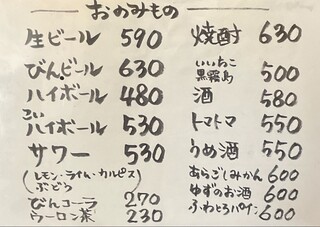 おのみもの
生ビール 590
びん・ビール 630
ハイボール 480
こい
ハイボール 530
サワー 530
(レモン・ライム・カルピス
ぶどう)
びんコーラ 270
ウーロン茶 230
焼酎 630
いいちこ
黒霧島 500
酒 580
トマトマ 550
うめ酒 550
あらごしみかん 600
ゆずのお酒 600
ふわとろパイン 600